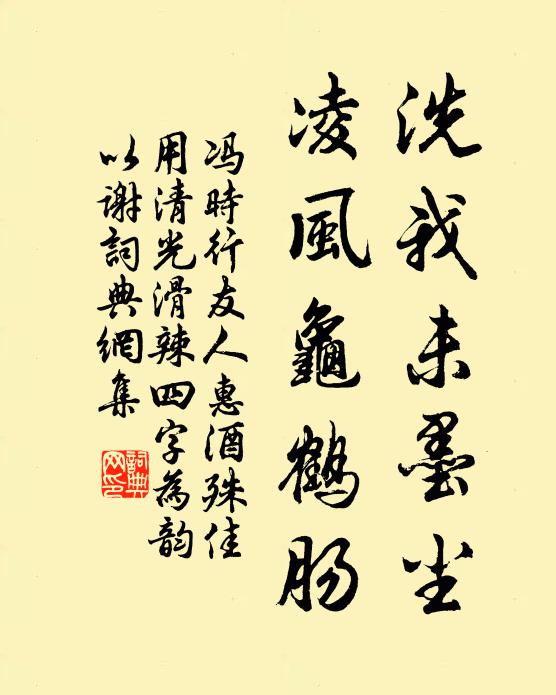 洗我未墨尘
凌風龜鶴肠
冯時行友人惠酒殊佳
用清光滑辣四字為韵
以謝詞典網集
詞典网印